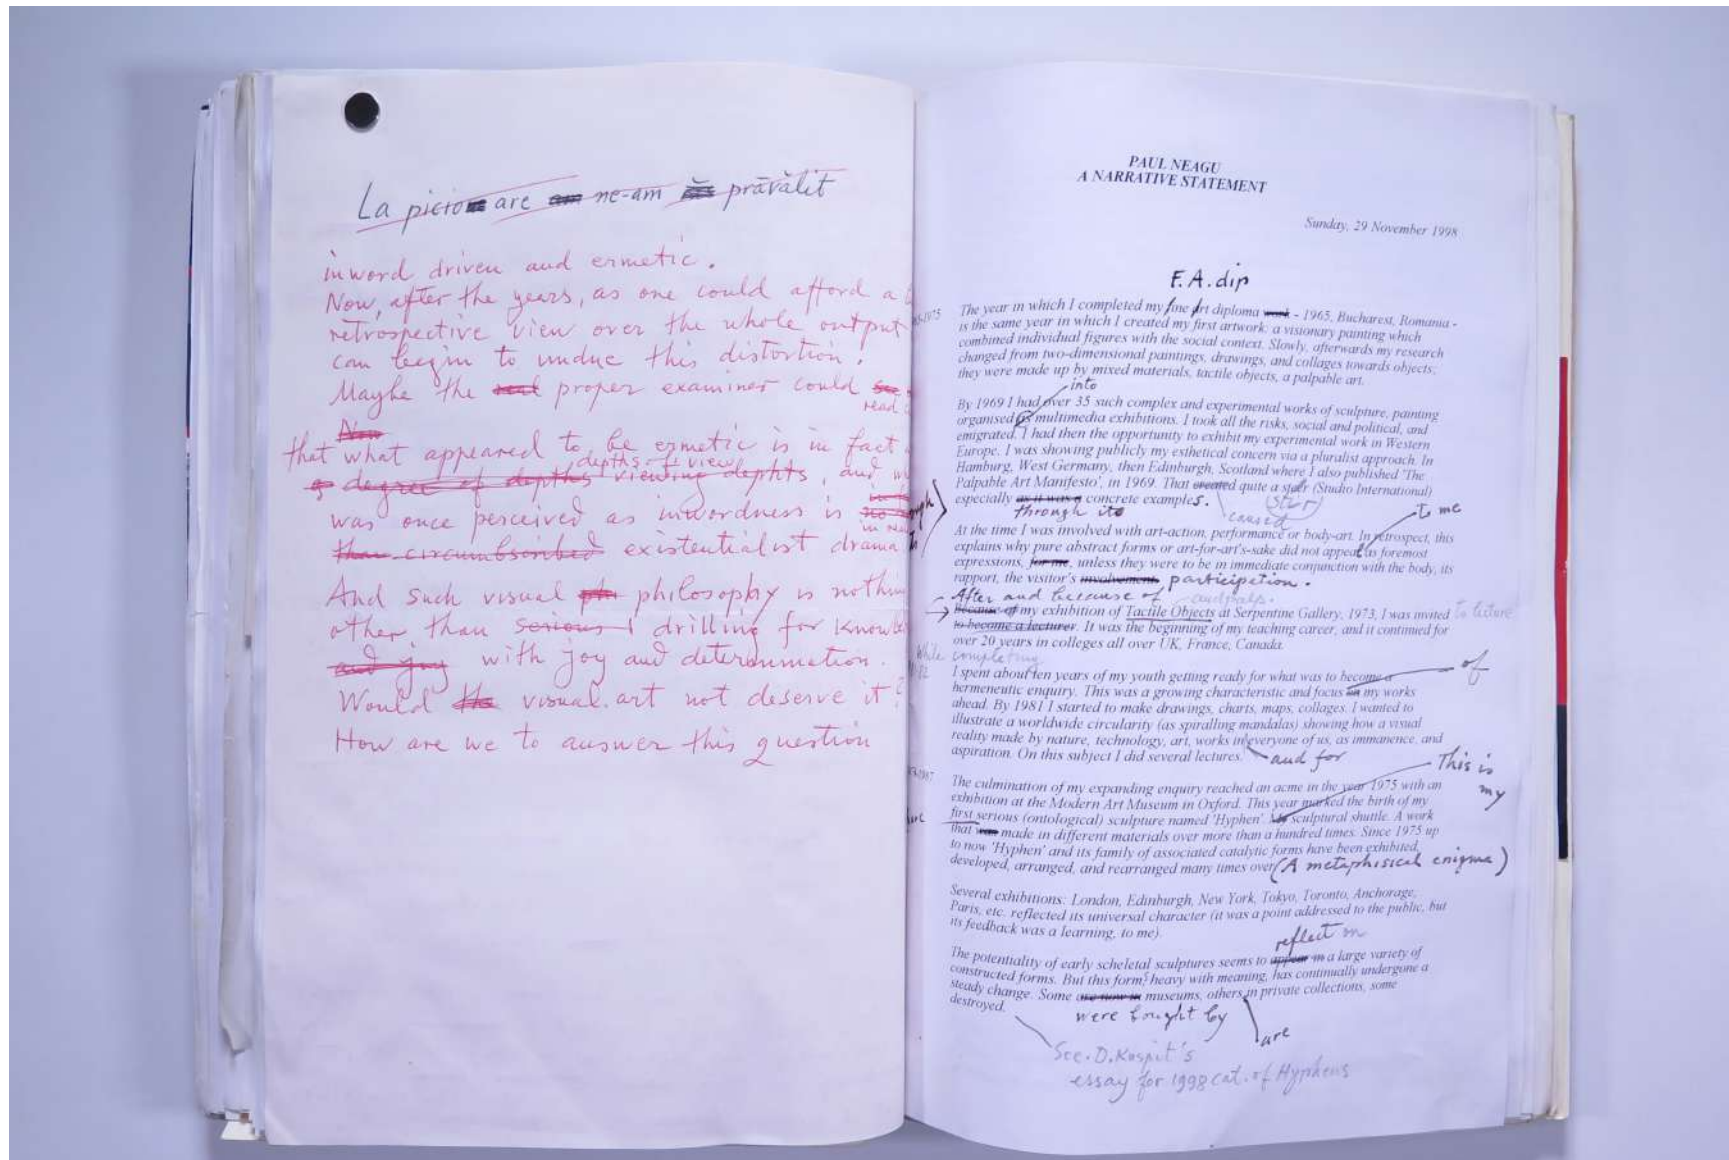 La picio are ne-am prăvălit
inword driven and ermetic.
Now, after the years, as one could afford a
retrospective view over the whole output
can begin to undue this distortion.
Maybe the real proper examiner could see
read
Now
that what appeared to be ermetic is in fact
depths of view
degree of depths viewing depthts, and
was once perceived as inwordness is
than circumbscribed existentialist drama
And such visual phi philosophy is nothin
other than serious drilling for knowle
and joy with joy and determination.
Would the visual art not deserve it?
How are we to answer this question
PAUL NEAGU
A NARRATIVE STATEMENT
Sunday, 29 November 1998
F.A. dip
The year in which I completed my fine art diploma work - 1965, Bucharest, Romania -
is the same year in which I created my first artwork: a visionary painting which
combined individual figures with the social context. Slowly, afterwards my research
changed from two-dimensional paintings, drawings, and collages towards objects;
they were made up by mixed materials, tactile objects, a palpable art.
into
By 1969 I had over 35 such complex and experimental works of sculpture, painting
organised as multimedia exhibitions. I took all the risks, social and political, and
emigrated. I had then the opportunity to exhibit my experimental work in Western
Europe. I was showing publicly my esthetical concern via a pluralist approach. In
Hamburg, West Germany, then Edinburgh, Scotland where I also published 'The
Palpable Art Manifesto', in 1969. That created quite a stir (Studio International)
especially as it was a concrete examples.
through its
caused
stir
to me
At the time I was involved with art-action, performance or body-art. In retrospect, this
explains why pure abstract forms or art-for-art's-sake did not appeal as foremost
expressions, for me, unless they were to be in immediate conjunction with the body, its
rapport, the visitor's involvement. participation.
After and because of
Because of my exhibition of Tactile Objects at Serpentine Gallery, 1973, I was invited to lecture
to become a lecturer. It was the beginning of my teaching career, and it continued for
over 20 years in colleges all over UK, France, Canada.
While completing
of
I spent about ten years of my youth getting ready for what was to become a
hermeneutic enquiry. This was a growing characteristic and focus in my works
ahead. By 1981 I started to make drawings, charts, maps, collages. I wanted to
illustrate a worldwide circularity (as spiralling mandalas) showing how a visual
reality made by nature, technology, art, works in everyone of us, as immanence, and
aspiration. On this subject I did several lectures.
and for
This is
my
The culmination of my expanding enquiry reached an acme in the year 1975 with an
exhibition at the Modern Art Museum in Oxford. This year marked the birth of my
first serious (ontological) sculpture named 'Hyphen'. My sculptural shuttle. A work
that was made in different materials over more than a hundred times. Since 1975 up
to now 'Hyphen' and its family of associated catalytic forms have been exhibited,
developed, arranged, and rearranged many times over (A metaphisical enigma)
Several exhibitions: London, Edinburgh, New York, Tokyo, Toronto, Anchorage,
Paris, etc. reflected its universal character (it was a point addressed to the public, but
its feedback was a learning, to me).
reflect on
The potentiality of early scheletal sculptures seems to appear in a large variety of
constructed forms. But this form, heavy with meaning, has continually undergone a
steady change. Some are now in museums, others in private collections, some
destroyed.
were bought by
are
See. D. Kuspit's
essay for 1998 cat. of Hyphens